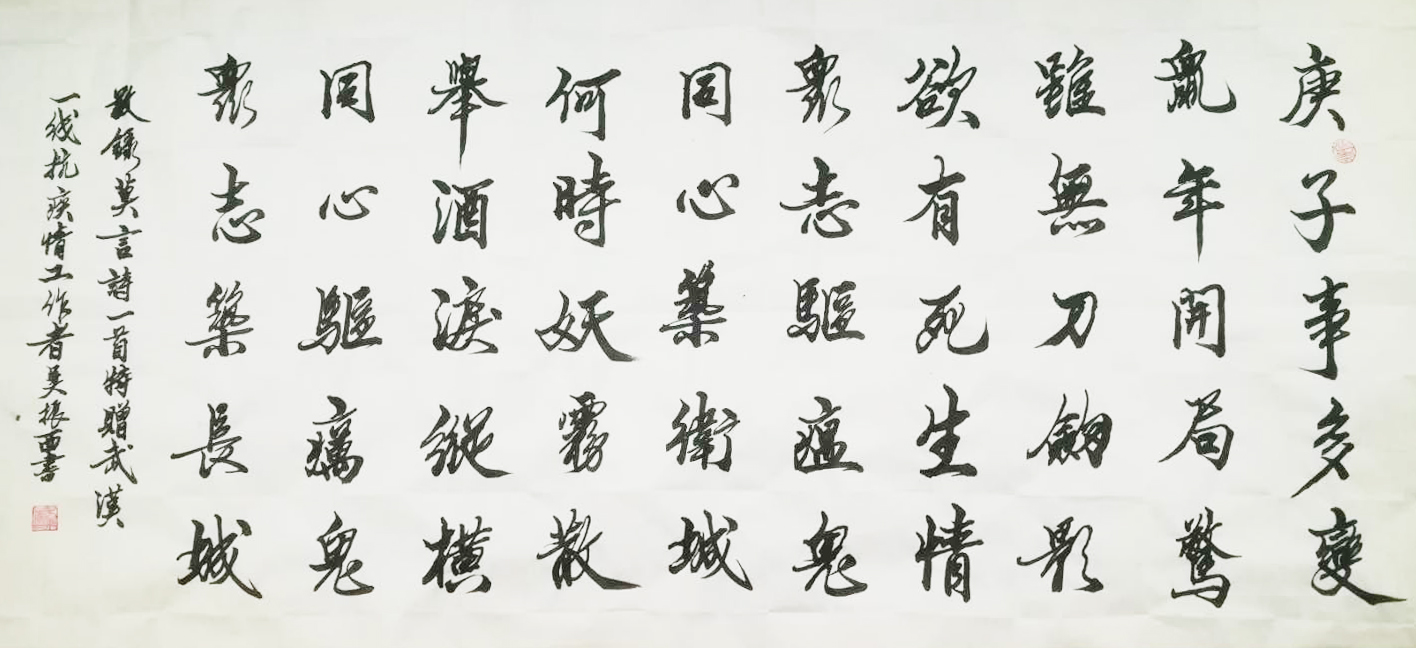 庚子事多變
鼠年開局驚
雖無刀劒影
欲有死生情
衆志驅瘟鬼
同心築衛城
何時妖霧散
舉酒淚縱橫
同心驅癘鬼
衆志築長城
敬錄莫言詩一首特贈武漢
一线抗疾情工作者吴振西書